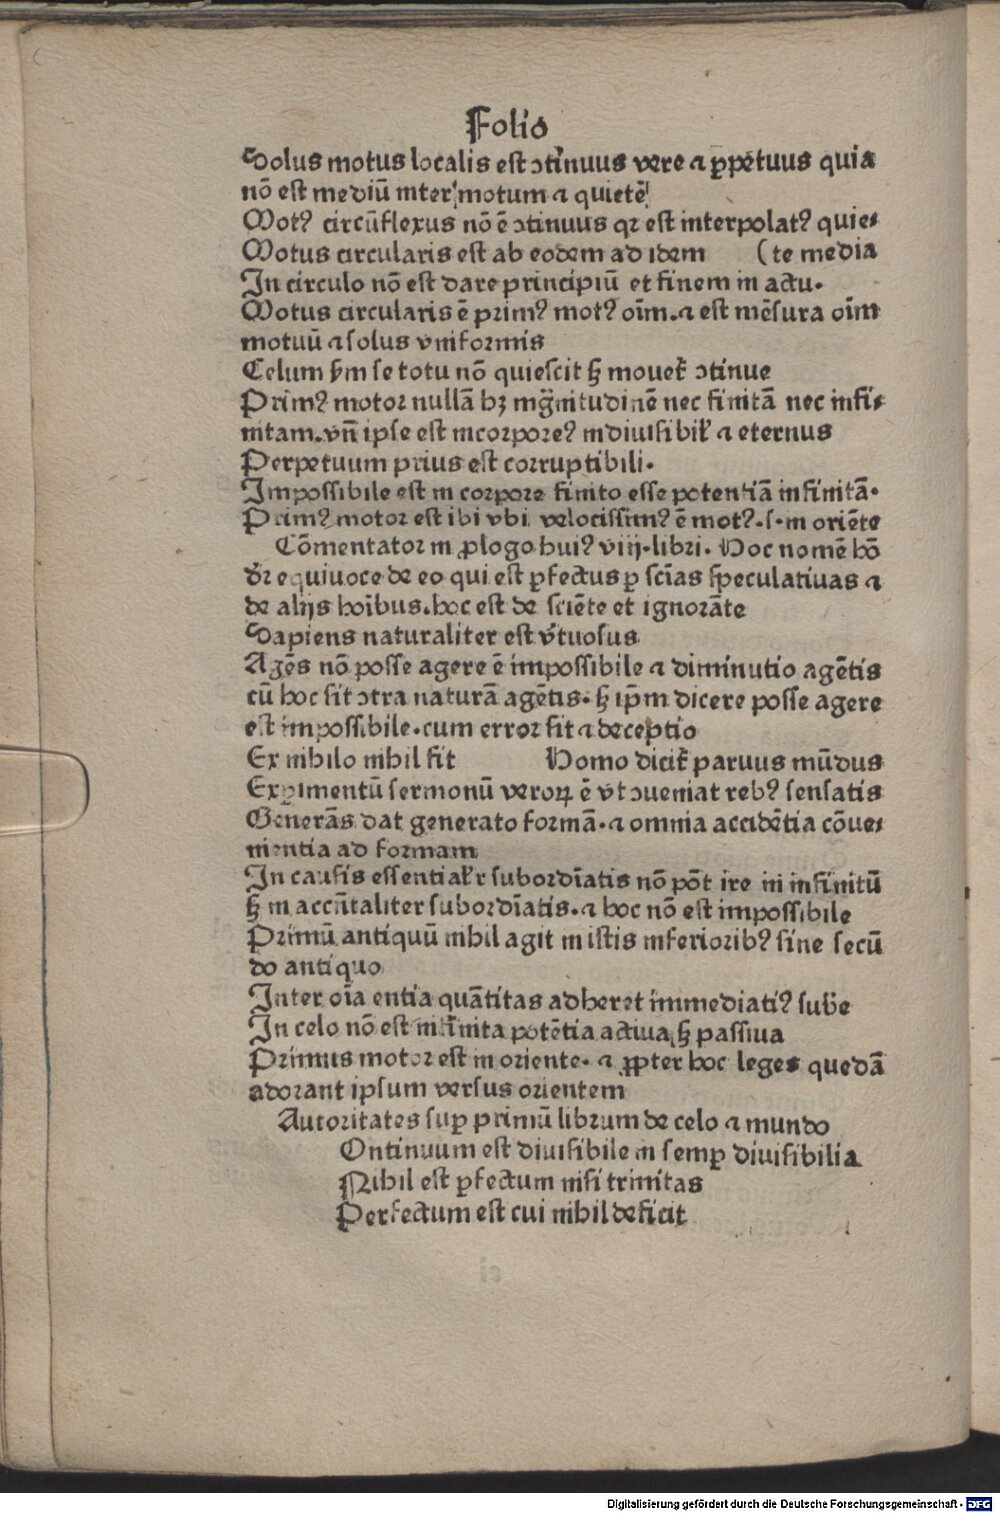 Folio
Solus motus localis est ↄtinuus vere ⁊ ꝑpetuus quia
nō est mediū inter motum ⁊ quietē
Motꝰ circūflexus nō ē ↄtinuus qꝛ est interpolatꝰ quie⸗
Motus circularis est ab eodem ad idem (te media
In circulo nō est dare principiū et finem in actu.
Motus circularis ē primꝰ motꝰ oīm. ⁊ est mēsura oīm
motuū ⁊ solus vniformis
Celum ẜm se totu nō quiescit ꝫ mouet᷑ ↄtinue
Primꝰ motor nullā hꝫ mg̅nitudinē nec finitā nec infi⸗
nitam. vn̄ ipse est incorporeꝰ indiuisibił ⁊ eternus
Perpetuum prius est corruptibili.
Impossibile est in corpore finito esse potentiā infinitā.
Primꝰ motor est ibi vbi velocissimꝰ ē motꝰ. s. in oriēte
Cōmentator in ꝓlogo huiꝰ viij. libri. Hoc nomē hō
dr̄ equiuoce de eo qui est ꝑfectus ꝑ scīas speculatiuas ⁊
de alijs hoībus. hoc est de sciēte et ignorāte
Sapiens naturaliter est v̓tuosus
Agēs nō posse agere ē impossibile ⁊ diminutio agētis
cū hoc sit ↄtra naturā agētis. ꝫ ip̄m dicere posse agere
est impossibile. cum error sit ⁊ deceptio
Ex nihilo nihil fit Homo dicit᷑ paruus mūdus
Exꝑimentū sermonū veroꝝ ē vt ↄueniat rebꝰ sensatis
Generās dat generato formā. ⁊ omnia accidētia cōue⸗
nientia ad formam
In causis essentiałr subordīatis nō pōt ire in infinitū
ꝫ in accn̄taliter subordīatis. ⁊ hoc nō est impossibile
Primū antiquū nihil agit in istis inferioribꝰ sine secū
do antiquo
Inter oīa entia quātitas adheret immediatiꝰ sub̄e
In celo nō est infinita potētia actiua ꝫ passiua
Primus motor est in oriente. ⁊ ꝓpter hoc leges quedā
adorant ipsum versus orientem
Autoritates suꝑ primū librum de celo ⁊ mundo
Ontinuum est diuisibile in semꝑ diuisibilia
Nihil est ꝑfectum nisi trinitas
Perfectum est cui nihil deficit
Digitalisierung gefördert durch die Deutsche Forschungsgemeinschaft - DFG